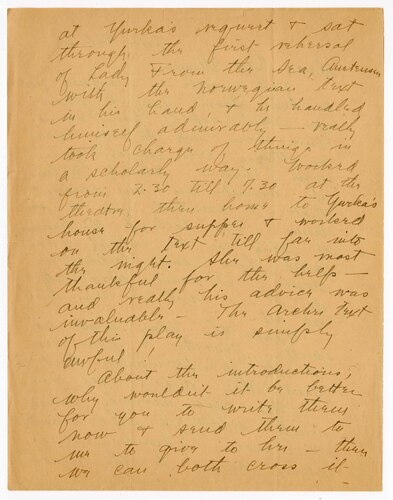 at Yurka's request & sat
through the first rehersal
of Lady From the Sea,
with the Norwegian text
in his hand, & he handled
himself admirably — really
took charge of things in
a scholarly way. Worked
from 2.30 till 7.30 at the
theatre, then home to Yurka's
house for supper & worked
on the text till far into
the night. She was most
thankful for the help —
and really his advice was
invaluable — The Archer text
of this play is simply
awful!
About the introductions,
why wouldn't it be better
for you to write them
now & send them to
me to give to her — then
we can both cross it —